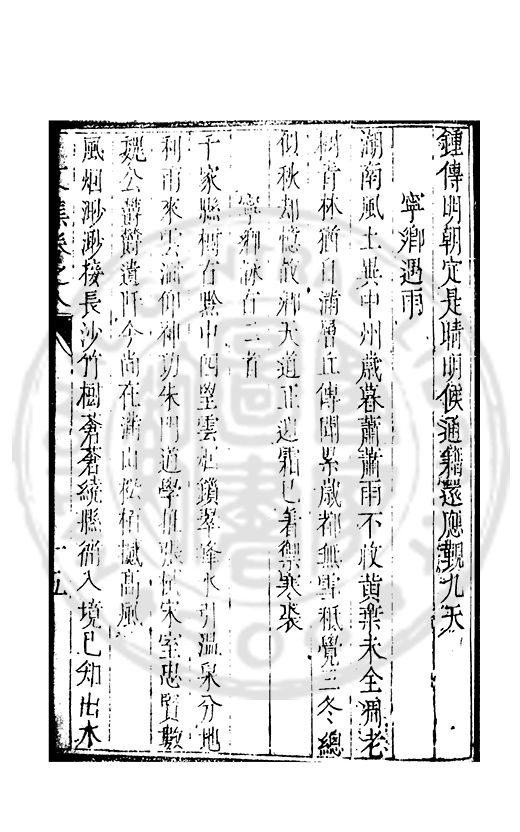 鍾傳明朝定是晴明候通籍還應觀九天
寧鄉遇雨
湖南風土異中州歲暮蕭蕭雨不收黄葉未全凋老
樹青林猶自滿層丘傳聞累歲都無雪秪覺三冬總
似秋却憶故鄉天道正迎霜已着禦寒裘
寧鄉詠古二首
千家縣樹古黔中四望雲山鎖翠峰水引温泉分地
利雨來雲洞仰神功朱門道學推張栻宋室忠賢數
魏公遺阡今尚在滿山松栢撼高風
風烟渺渺接長沙竹樹蒼蒼繞縣衙入境已知山水
文集卷之八
十五